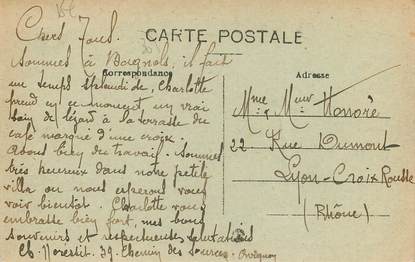 CARTE POSTALE
Correspondance
Adresse
Chers Tous.
Sommes à Bagnols, il fait
un temps splendide, Charlotte
prend en ce moment un vrai
bain de lézard à la terrasse du
café marqué d'une croix.
Avons bien du travail. Sommes
très heureux dans notre petite
villa ou nous espérons vous
voir bientôt. Charlotte vous
embrasse bien fort, mes bons
souvenirs et respectueuses salutations
Ch. 39. Chemin des Sources - Avignon
Mme & Mieur Honoré
22. Rue Dumont
Lyon-Croix Rousse
(Rhône)